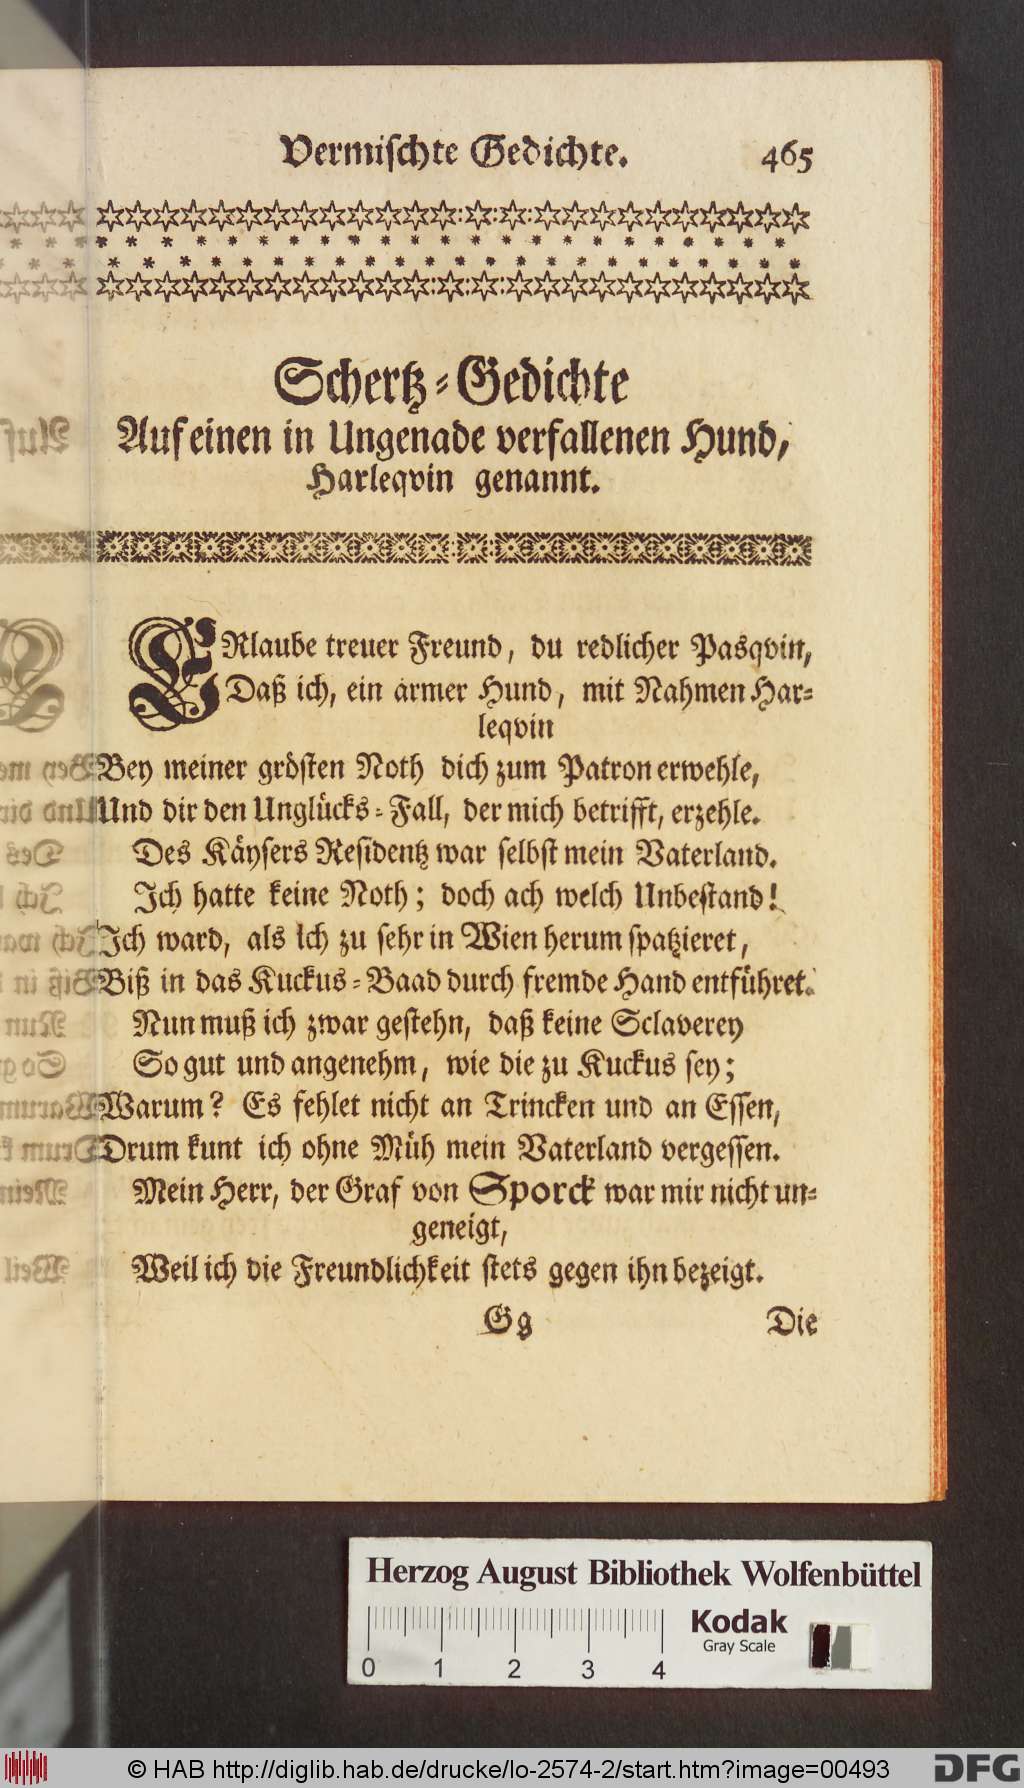 Vermischte Gedichte. 465
Schertz-Gedichte
Auf einen in Ungenade verfallenen Hund,
Harleqvin genannt.
ERlaube treuer Freund, du redlicher Pasqvin,
Daß ich, ein armer Hund, mit Nahmen Har-
leqvin
Bey meiner grösten Noth dich zum Patron erwehle,
Und dir den Unglücks-Fall, der mich betrifft, erzehle.
Des Käysers Residentz war selbst mein Vaterland.
Ich hatte keine Noth; doch ach welch Unbestand!
Ich ward, als ich zu sehr in Wien herum spatzieret,
Biß in das Kuckus-Baad durch fremde Hand entführet.
Nun muß ich zwar gestehn, daß keine Sclaverey
So gut und angenehm, wie die zu Kuckus sey;
Warum? Es fehlet nicht an Trincken und an Essen,
Drum kunt ich ohne Müh mein Vaterland vergessen.
Mein Herr, der Graf von Sporck war mir nicht un-
geneigt,
Weil ich die Freundlichkeit stets gegen ihn bezeigt.
Gg Die
Herzog August Bibliothek Wolfenbüttel
Kodak
Gray Scale
0 1 2 3 4
© HAB http://diglib.hab.de/drucke/lo-2574-2/start.htm?image=00493
DFG